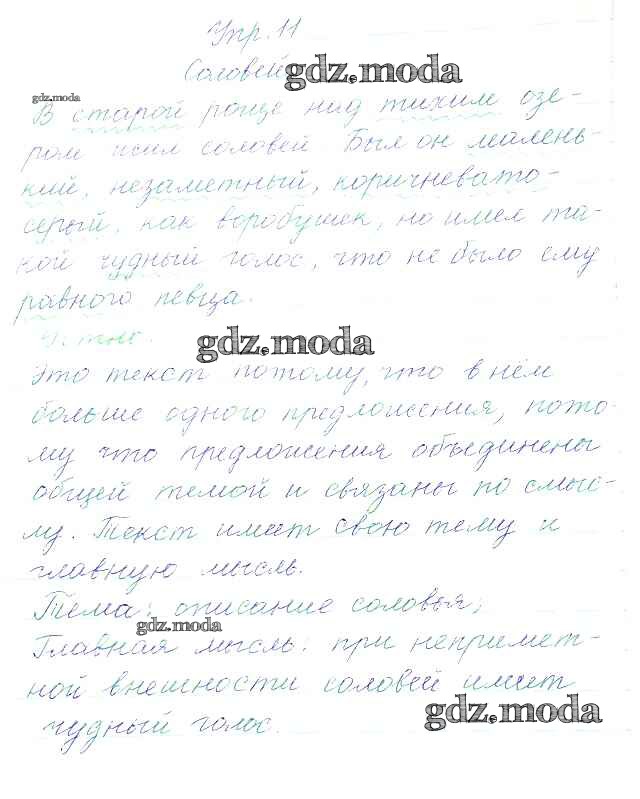 Упр. 11
Соловей
gdz.moda
gdz.moda
В старой роще над тихим озе-
ром жил соловей. Был он малень-
кий, незаметный, коричневато-
серый, как воробушек, но имел та-
кой чудный голос, что не было ему
равного певца.
Устно.
gdz.moda
Это текст потому, что в нём
больше одного предложения, пото-
му что предложения объединены
общей темой и связаны по смыс-
лу. Текст имеет свою тему и
главную мысль.
Тема: описание соловья;
gdz.moda
Главная мысль: при непримет-
ной внешности соловей имеет
чудный голос.
gdz.moda